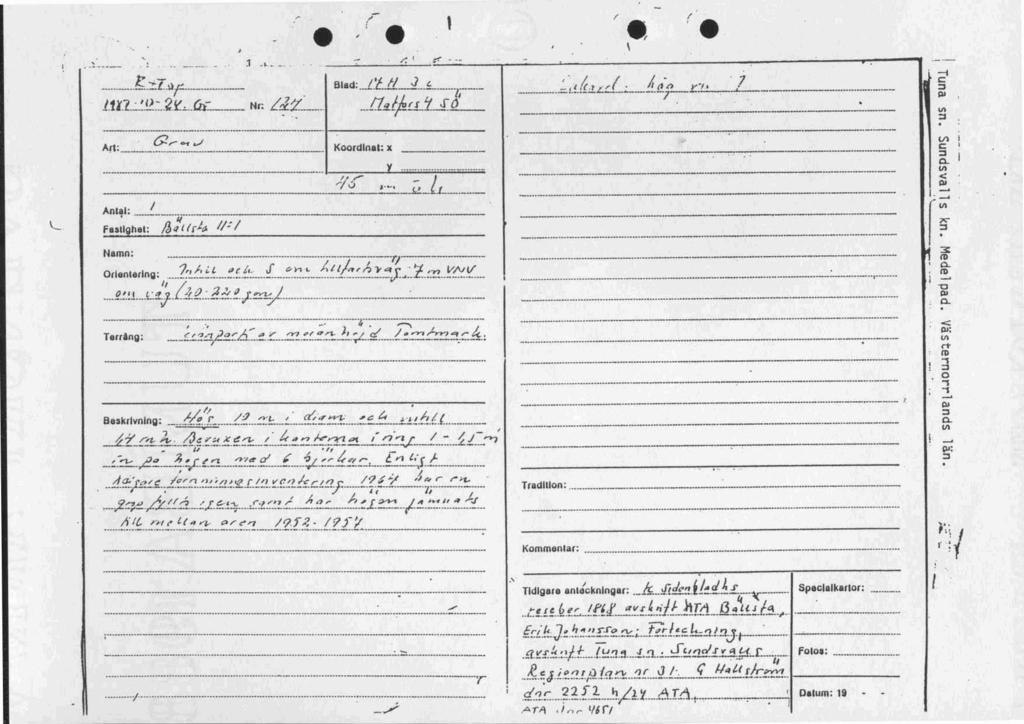 1987-10-24. Gr Nr: 124
Blad: 17 H 3 c
Matfors 4 SÖ
Art: Grav
Koordinat: x
y
45 m ö h
Antal: 1
Fastighet: Bällsta 11:1
Namn:
Orientering: Intill och S om tillfartsväg, 7 m VNV
om väg (20-220 gon)
Terräng: av moränhöjd Tomtmark.
Beskrivning: Hög, 19 m i diam och intill
m h. Bevuxen i kanterna i ring 1 - 1,5 m
in på högen med 6 björkar. Enligt
fornminnesinventering 1964 har en
grop fyllts igen samt har högen jämnats
till mellan åren 1952-1957
hög nr. 1
Tradition:
Kommentar:
Tidigare anteckningar: K Sidenbladhs
reseber 1868 avskrift ATA Bällsta,
Erik Johansson; Förteckning,
avskrift Tuna sn. Sundsvalls
Regionsplan nr 31. G Hallström
dnr 2252 h/24 ATA
ATA dnr 4651
Specialkartor:
Fotos:
Datum: 19 - -
Tuna sn. Sundsvalls kn. Medelpad. Västernorrlands län.